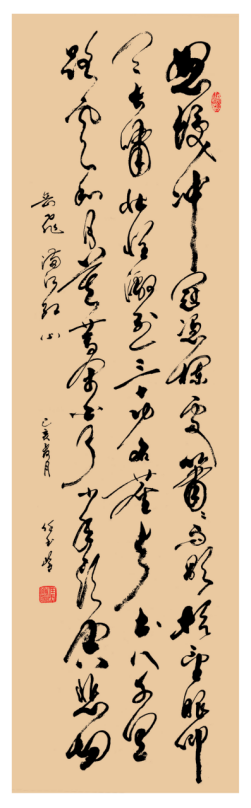 怒发冲冠凭栏处潇潇雨歇抬望眼仰
天长啸壮怀激烈三十功名尘与土八千里
路云和月莫等闲白了少年头空悲切
岳飞满江红
己亥 月